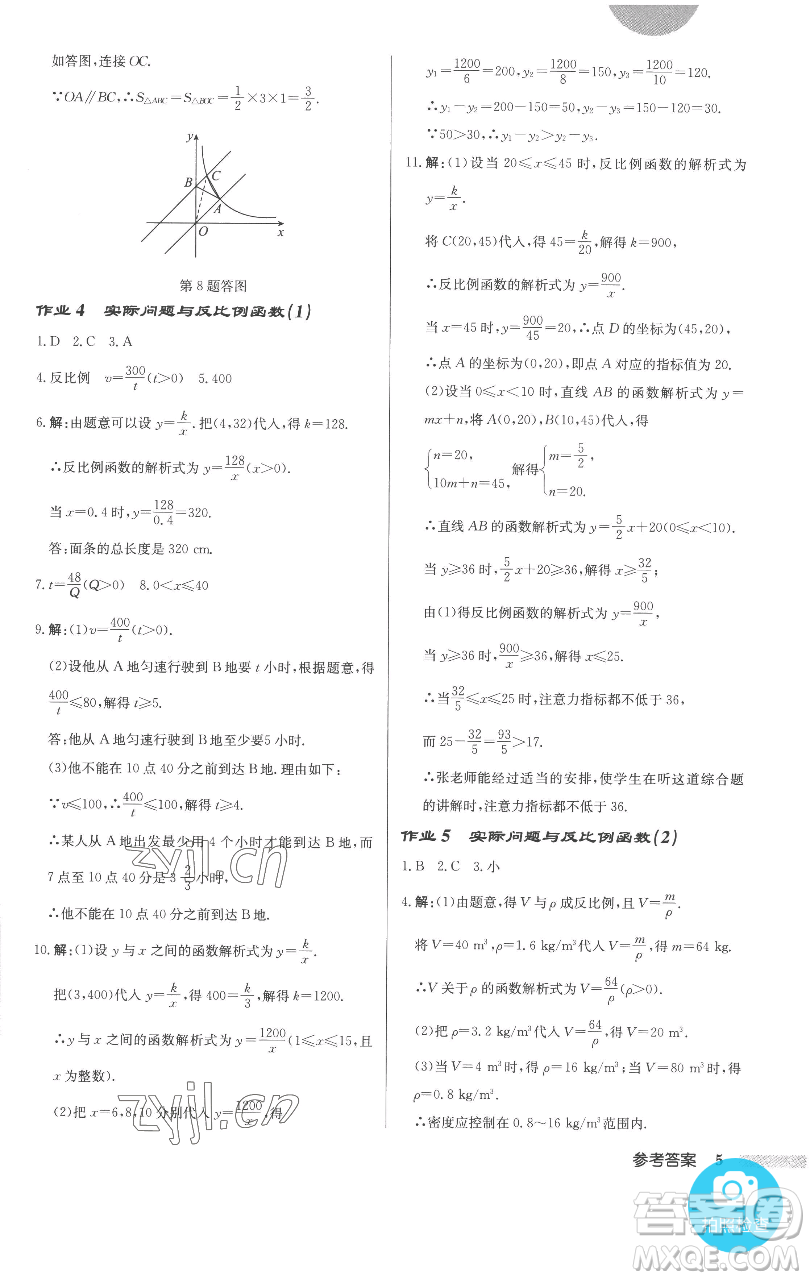 如答图,连接OC.
∵OA∥BC,∴S△ABC=S△BOC=1/2×3×1=3/2.
y
B
C
A
O
x
第8题答图
作业4 实际问题与反比例函数(1)
1.D 2.C 3.A
4.反比例 v=300/t(t>0) 5.400
6.解:由题意可以设y=k/x.把(4,32)代人,得k=128.
∴反比例函数的解析式为y=128/x(x>0).
当x=0.4时,y=128/0.4=320.
答:面条的总长度是320 cm.
7.t=48/Q(Q>0) 8.0<x≤40
9.解:(1)v=400/t(t>0).
(2)设他从A地匀速行驶到B地要t小时,根据题意,得
400/t≤80,解得t≥5.
答:他从A地匀速行驶到B地至少要5小时.
(3)他不能在10点40分之前到达B地.理由如下:
∵v≤100,∴400/t≤100,解得t≥4.
∴某人从A地出发最少用4个小时才能到达B地,而
7点至10点40分是3 2/3小时,
∴他不能在10点40分之前到达B地.
10.解:(1)设y与x之间的函数解析式为y=k/x.
把(3,400)代人y=k/x,得400=k/3,解得k=1200.
∴y与x之间的函数解析式为y=1200/x(1≤x≤15,且
x为整数).
(2)把x=6,8,10分别代人y=1200/x,得
y₁=1200/6=200,y₂=1200/8=150,y₃=1200/10=120.
∴y₁-y₂=200-150=50,y₂-y₃=150-120=30.
∵50>30,∴y₁-y₂>y₂-y₃.
11.解:(1)设当20≤x≤45时,反比例函数的解析式为
y=k/x.
将C(20,45)代人,得45=k/20,解得k=900,
∴反比例函数的解析式为y=900/x.
当x=45时,y=900/45=20,∴点D的坐标为(45,20),
∴点A的坐标为(0,20),即点A对应的指标值为20.
(2)设当0≤x<10时,直线AB的函数解析式为y=
mx+n,将A(0,20),B(10,45)代人,得
{n=20, 10m+n=45, 解得{m=5/2, n=20.
∴直线AB的函数解析式为y=5/2x+20(0≤x<10).
当y≥36时,5/2x+20≥36,解得x≥32/5;
由(1)得反比例函数的解析式为y=900/x,
当y≥36时,900/x≥36,解得x≤25.
∴当32/5≤x≤25时,注意力指标都不低于36,
而25-32/5=93/5>17.
∴张老师能经过适当的安排,使学生在听这道综合题
的讲解时,注意力指标都不低于36.
作业5 实际问题与反比例函数(2)
1.B 2.C 3.小
4.解:(1)由题意,得V与ρ成反比例,且V=m/ρ.
将V=40 m³,ρ=1.6 kg/m³代人V=m/ρ,得m=64 kg.
∴V关于ρ的函数解析式为V=64/ρ(ρ>0).
(2)把ρ=3.2 kg/m³代人V=64/ρ,得V=20 m³.
(3)当V=4 m³时,ρ=16 kg/m³;当V=80 m³时,
ρ=0.8 kg/m³.
∴密度应控制在0.8~16 kg/m³范围内.
参考答案 5
zyjl.cn
zyjl.cn
答案卷
拍照检查
MXQE.COM